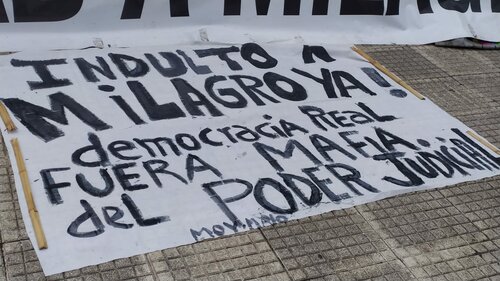 A MILAG
INDULTO A
MILAGRO YA!
democracia Real
FUERA MAFIA.
del PODER JUDICIAL